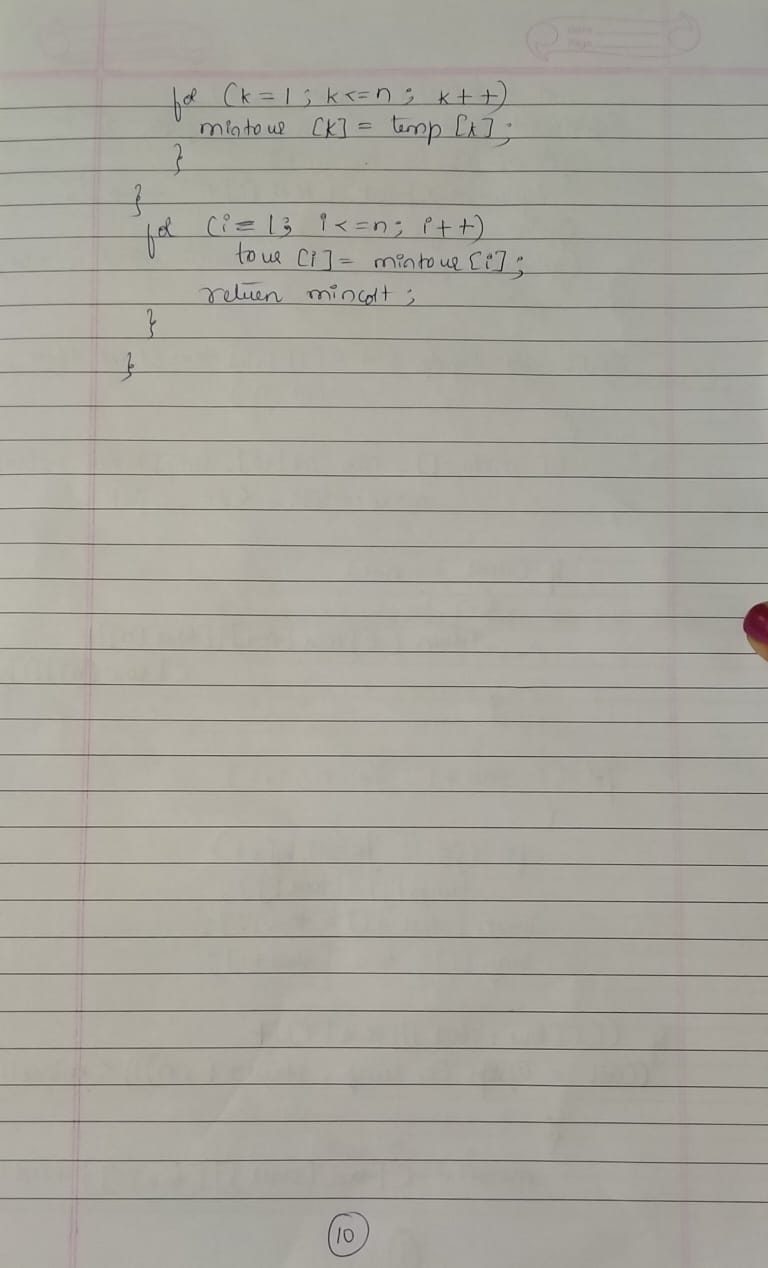 for (k = 1 ; k <= n ; k + +)
mintour [k] = temp [k] ;
}
}
for (i = 1 ; i <= n ; i + +)
tour [i] = mintour [i] ;
return mincost ;
}
}
10